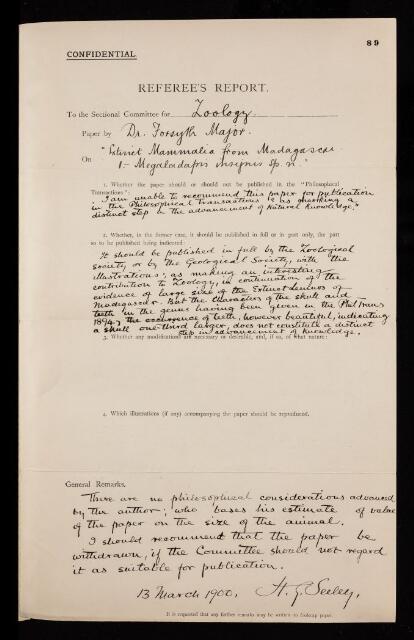 89
CONFIDENTIAL
REFEREE'S REPORT.
To the Sectional Committee for Zoology
Paper by Dr. Forsyth Major.
On "Extinct Mammalia from Madagascar.
I.– Megaladapis insignis sp. n."
1. Whether the paper should or should not be published in the "Philosophical
Transactions":
I am unable to recommend this paper for publication
in the Philosophical Transactions as marking a
distinct step in the advancement of Natural Knowledge."
2. Whether, in the former case, it should be published in full or in part only, the part
so to be published being indicated:
It should be published in full by the Zoological
Society, or by the Geological Society, with the
illustrations; as making an interesting
contribution to Zoology, in continuation of the
evidence of large size of the Extinct Lemurs of
Madagascar. But the characters of the skull and
teeth in the genus having been given in the Phil Trans
1894, the occurrence of teeth, however beautiful, indicating
a skull one-third larger, does not constitute a distinct
step in advancement of knowledge.
3. Whether any modifications are necessary or desirable, and, if so, of what nature:
4. Which illustrations (if any) accompanying the paper should be reproduced.
General Remarks.
There are no philosophical considerations advanced
by the author; who bases his estimate of value
of the paper on the size of the animal.
I should recommend that the paper be
withdrawn, if the Committee should not regard
it as suitable for publication.
13 March 1900, H. G. Seeley,
It is requested that any further remarks may be written on foolscap paper.